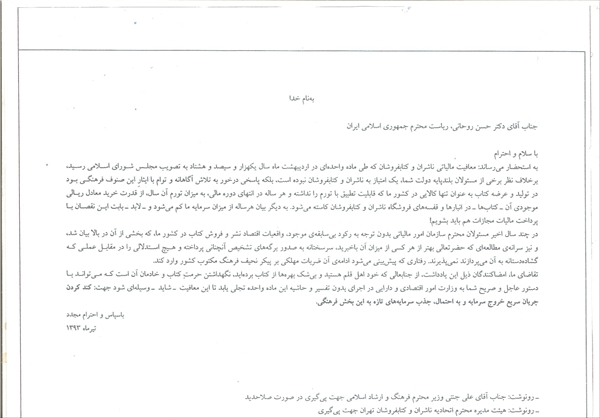 به‌نام خدا
جناب آقای دکتر حسن روحانی، ریاست محترم جمهوری اسلامی ایران
با سلام و احترام
به استحضار می‌رساند: معافیت مالیاتی ناشران و کتابفروشان که طی ماده واحده‌ای در اردیبهشت ماه سال یکهزار و سیصد و هشتاد به تصویب مجلس شورای اسلامی رسید،
برخلاف نظر برخی از مسئولان بلندپایه دولت شما، یک امتیاز به ناشران و کتابفروشان نبوده است، بلکه پاسخی درخور به تلاش آگاهانه و توام با ایثار این صنوف فرهنگی بود
در تولید و عرضه کتاب به عنوان تنها کالایی در کشور ما که قابلیت تطبیق با تورم را نداشته و هر ساله در انتهای دوره مالی، به میزان تورم آن سال، از قدرت خرید معادل ریالی
موجودی آن ـ کتاب‌ها ـ در انبارها و قفسه‌های فروشگاه ناشران و کتابفروشان کاسته می‌شود. به دیگر بیان هرساله از میزان سرمایه ما کم می‌شود و ـ لابد ـ بابت این نقصان با
پرداخت مالیات مجازات هم باید بشویم!
در چند سال اخیر مسئولان محترم سازمان امور مالیاتی بدون توجه به رکود بی‌سابقه‌ی موجود، واقعیات اقتصاد نشر و فروش کتاب در کشور ما، که بخشی از آن در بالا بیان شد،
و نیز سرانه‌ی مطالعه‌ای که حضرتعالی بهتر از هر کسی از میزان آن باخبرید، سرسختانه به صدور برگه‌های تشخیص آنچنانی پرداخته و هیچ استدلالی را در مقابل عملی که
گشاده‌دستانه به آن می‌پردازند نمی‌پذیرند. رفتاری که پیش‌بینی می‌شود ادامه‌ی آن ضربات مهلکی بر پیکر نحیف فرهنگ مکتوب کشور وارد کند.
تقاضای ما، امضاکنندگان ذیل این یادداشت، از جنابعالی که خود اهل قلم هستید و بی‌شک بهره‌ها از کتاب برده‌اید، نگهداشتن حرمت کتاب و خادمان آن است که می‌تواند با
دستور عاجل و صریح شما به وزارت امور اقتصادی و دارایی در اجرای بدون تفسیر و حاشیه این ماده واحده تجلی یابد تا این معافیت ـ شاید ـ وسیله‌ای شود جهت: کند کردن
جریان سریع خروج سرمایه و به احتمال، جذب سرمایه‌های تازه به این بخش فرهنگی.
باسپاس و احترام مجدد
تیرماه ۱۳۹۳
ـ رونوشت: جناب آقای علی جنتی وزیر محترم فرهنگ و ارشاد اسلامی جهت پی‌گیری در صورت صلاحدید
ـ رونوشت: هیئت مدیره محترم اتحادیه ناشران و کتابفروشان تهران جهت پی‌گیری